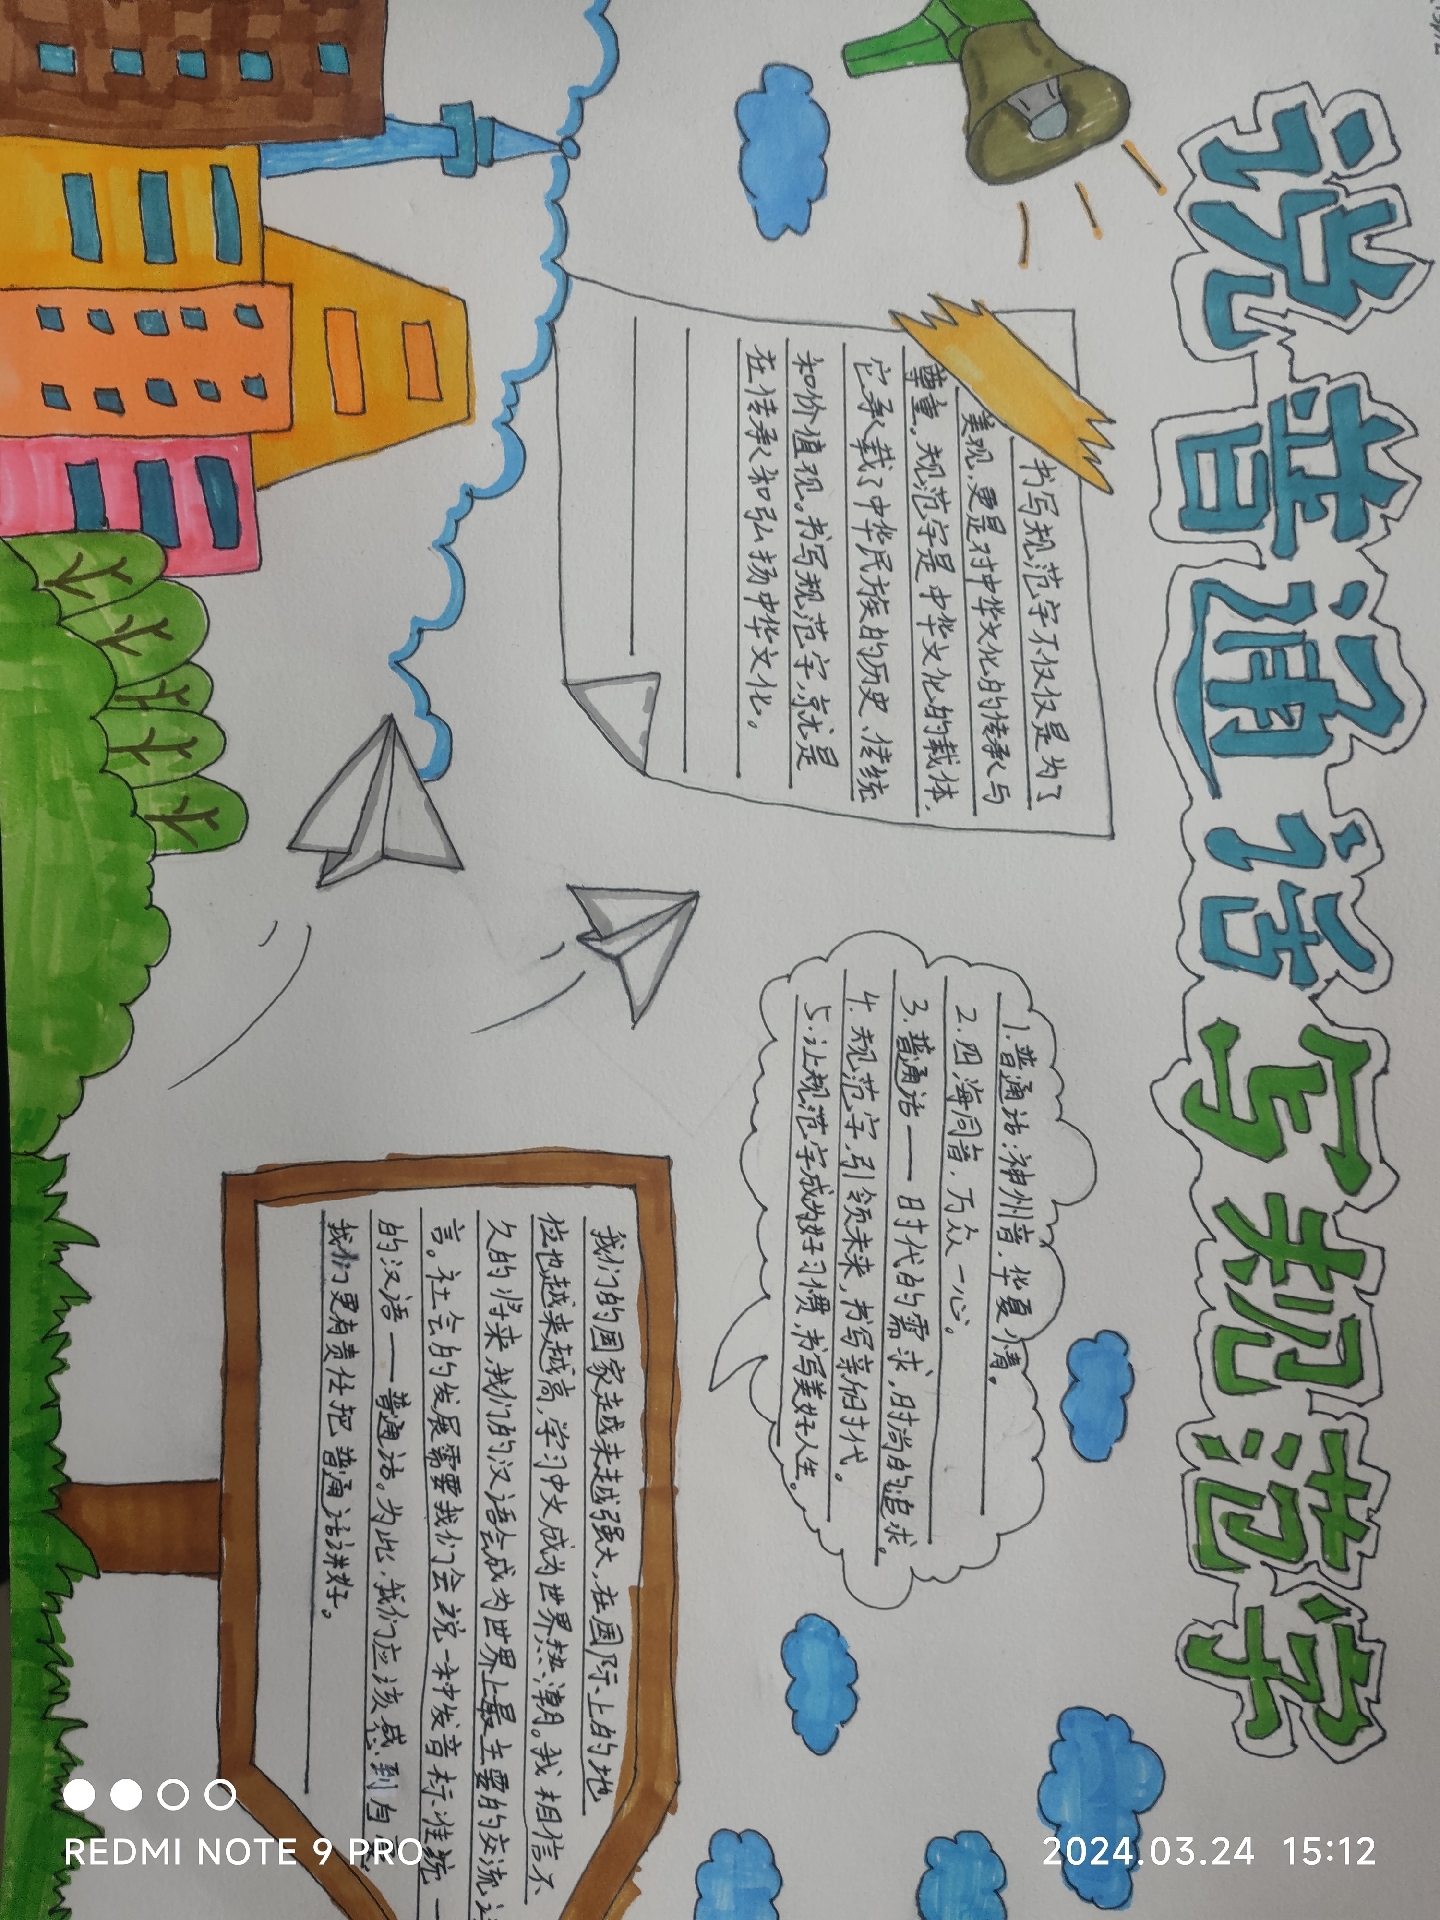 说普通话写规范字
书写规范字不仅仅是为了
美观,更是对中华文化的传承与
尊重。规范字是中华文化的载体,
它承载了中华民族的历史、传统
和价值观。书写规范字,就是
在传承和弘扬中华文化。
1.普通话:神州音,华夏情。
2.四海同音,万众一心。
3.普通话——时代的需求,时尚的追求。
4.规范字,引领未来,书写新时代。
5.让规范字成为好习惯,书写美好人生。
我们的国家越来越强大,在国际上的地
位也越来越高,学习中文成为世界热潮。我相信不
久的将来,我们的汉语会成为世界上最主要的交流
言。社会的发展需要我们会说一种发音标准统一
的汉语——普通话。为此,我们应该感到自豪
我们更有责任把普通话讲好。
REDMI NOTE 9 PRO
2024.03.24 15:12